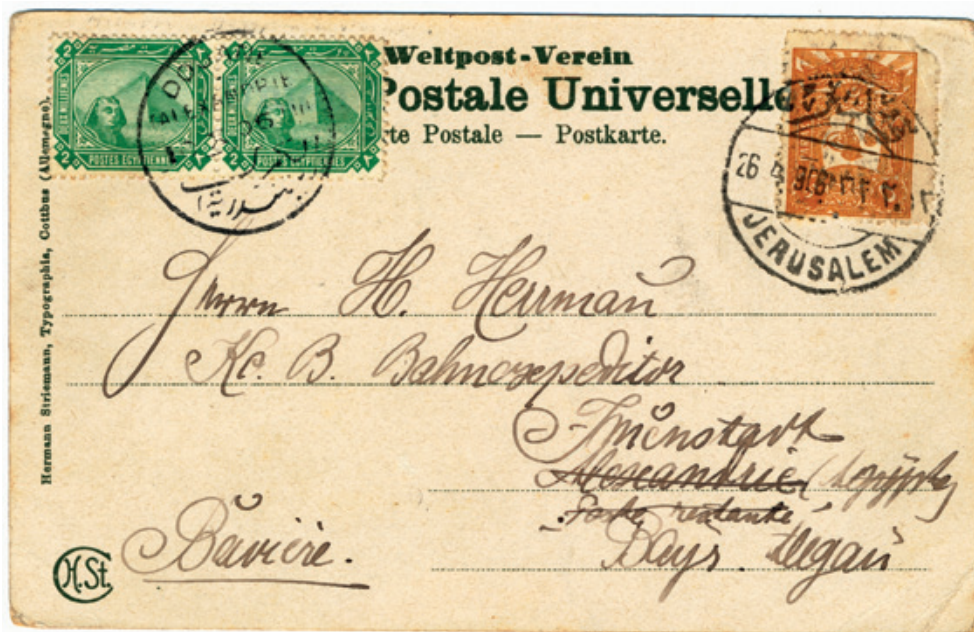 Weltpost-Verein
Postale Universelle
te Postale — Postkarte.
2 2 2 2
POSTES EGYPTIENNES
DOUANE
ALEXANDRIE
26 906
JERUSALEM
Hermann Striemann, Typographia, Cottbus (Allemagne).
Herrn H. Herrmañ
K. B. Bahnexpeditor
Immenstadt
Alexandrie (Egypte)
Poste restante
Bayr. Allgäu
Bavière.
H.St.